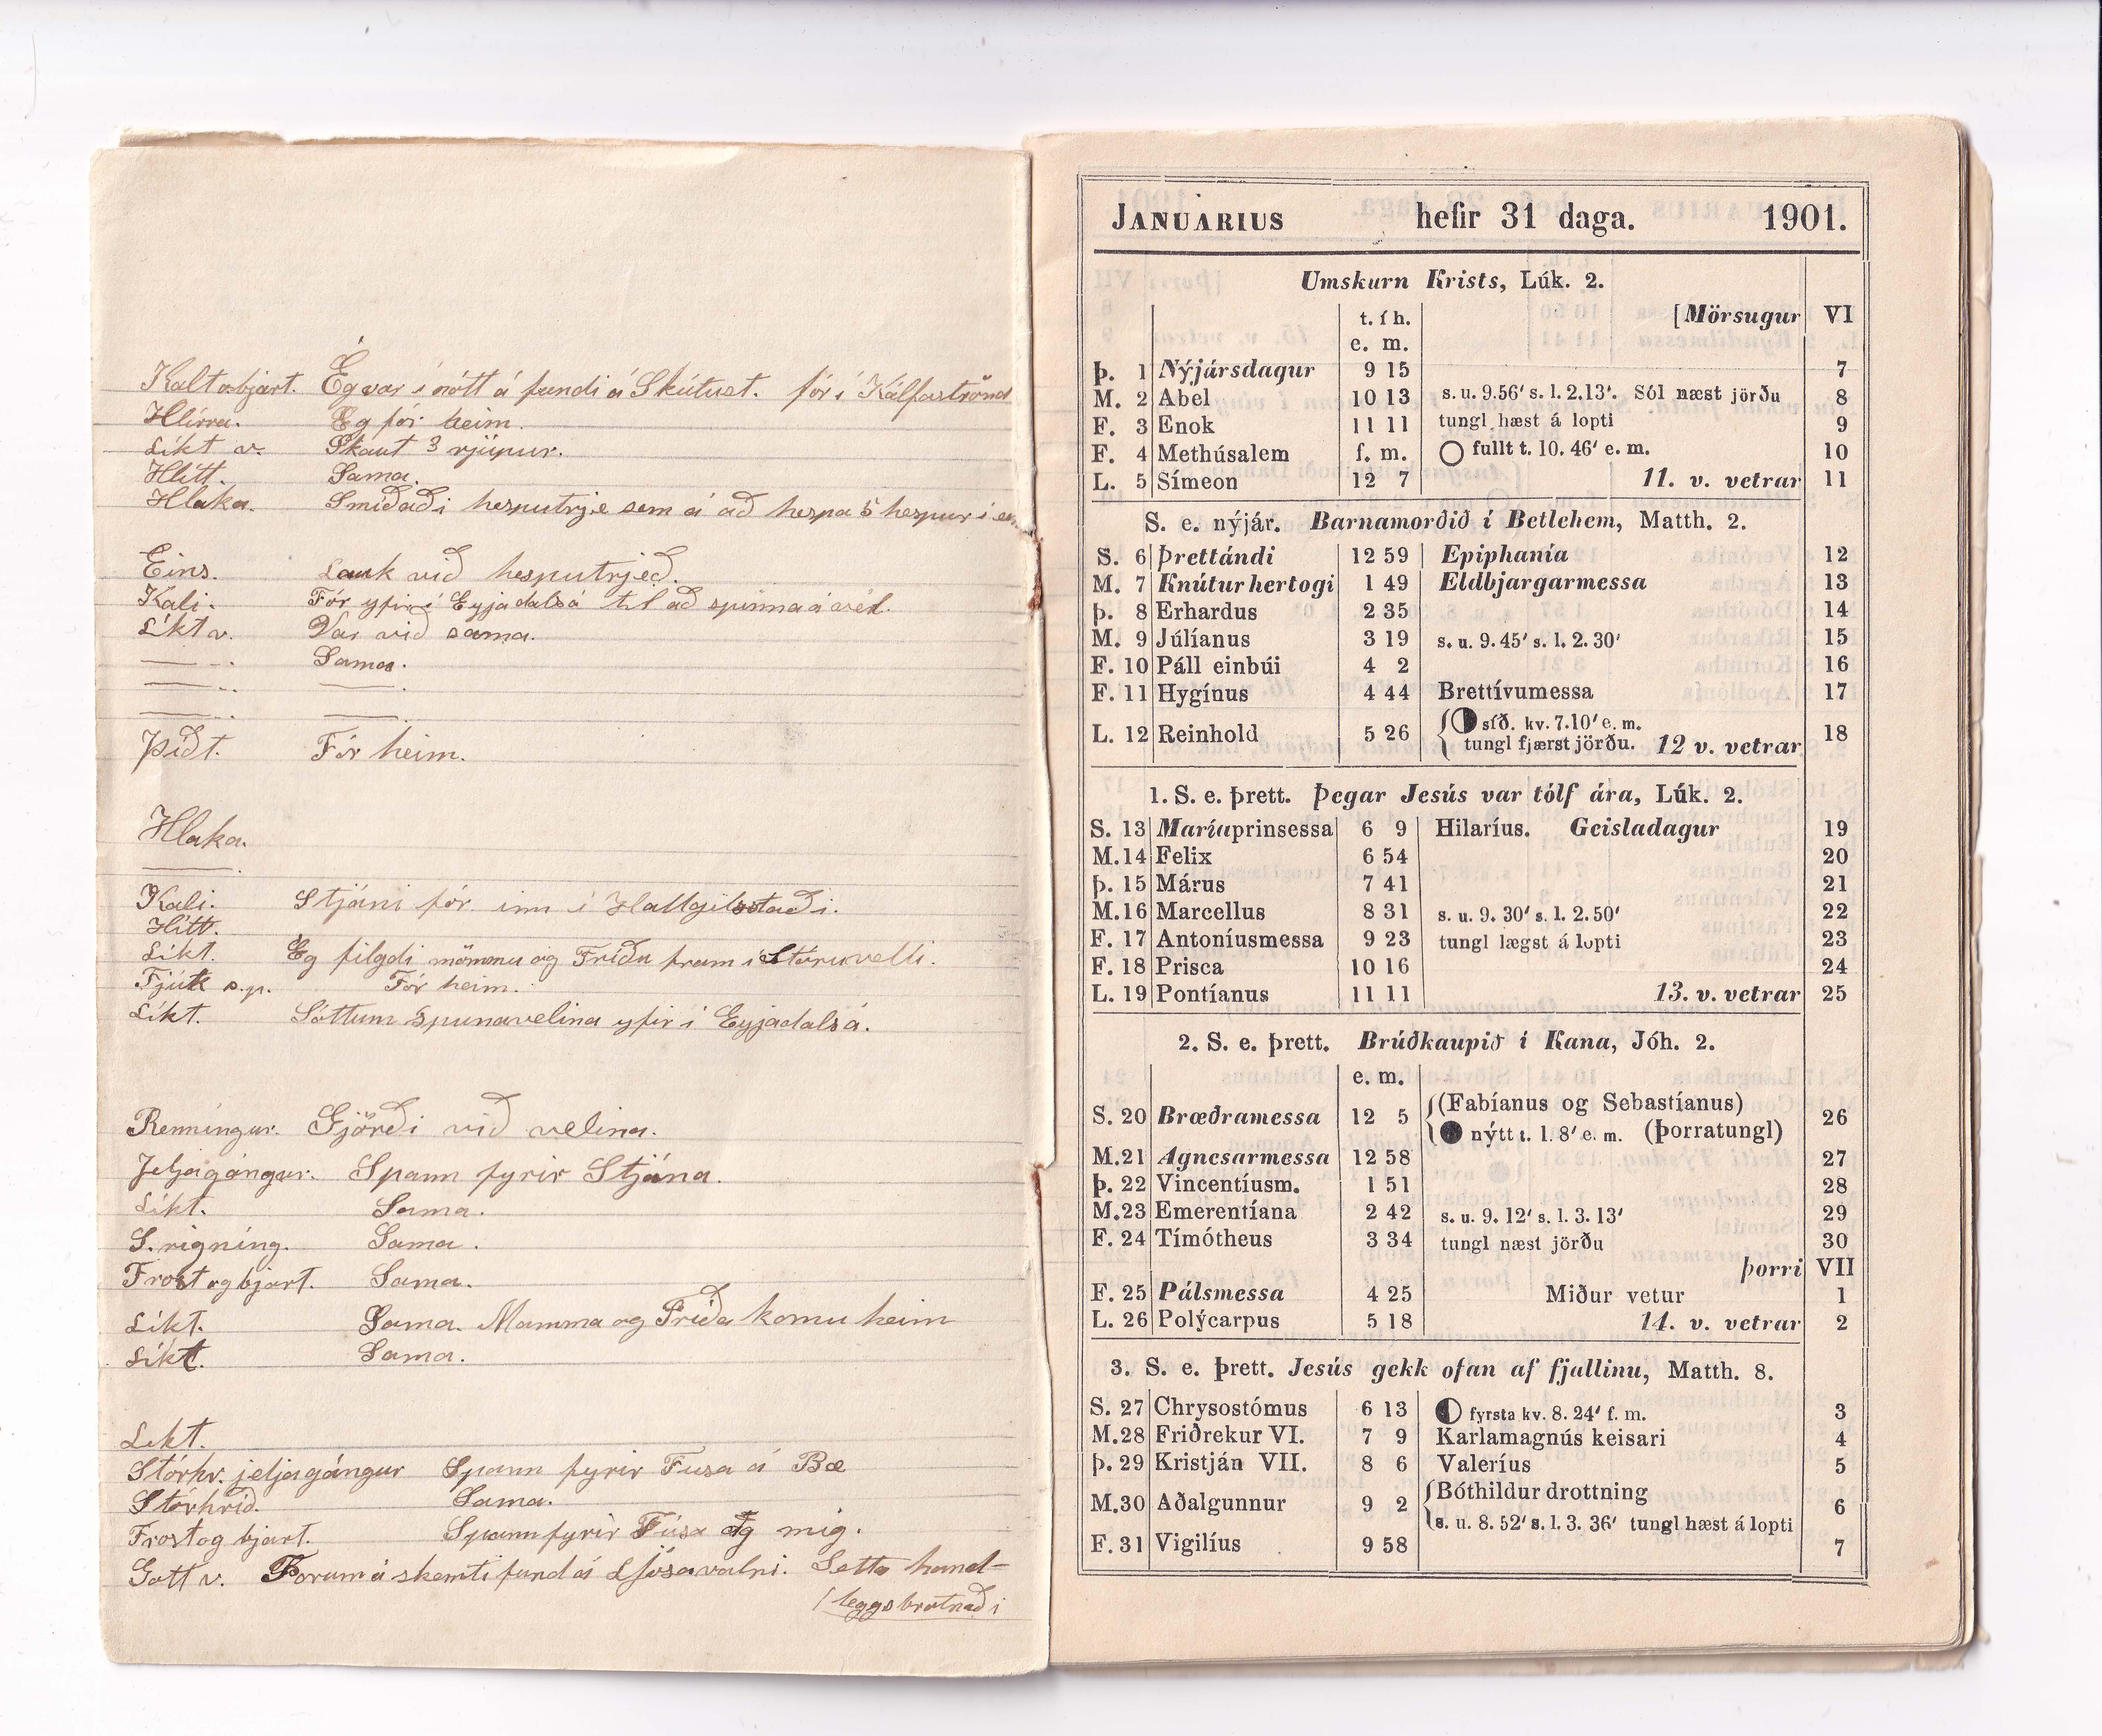 Kalt og bjart. Ég var í nótt á fundi á Skútust. fór í Kálfaströnd
Hlírra. Eg fór heim.
Líkt v. Skaut 3 rjúpur.
Hlítt. Sama.
Hlaka. Smíðaði hesputrje sem á að hespa 5 hespur í
Eins. Lauk við hesputrjeð.
Kali. Fór yfir í Eyjadalsá til að spinna á vél.
Líkt v. Var við sama.
— . Sama.
— . — .
— . — .
Þíðt. Fór heim.
Hlaka.
— .
Kali. Stjáni fór inn í Hallgilsstaði.
Hlítt.
Líkt. Eg filgdi mömmu og Fríðu fram í Stóruvelli.
Fjúk s.p. Fór heim.
Líkt. Sóttum Spunavelina yfir í Eyjadalsá.
Renningur. Gjörði við velina.
Jeljagángur. Spann fyrir Stjána.
Líkt. Sama.
S. rigning. Sama.
Frost og bjart. Sama.
Líkt. Sama. Mamma og Fríða komu heim
Líkt. Sama.
Líkt.
Stórhr. jeljagángur Spann fyrir Fusa á Bæ
Stórhríð. Sama.
Frost og bjart. Spann fyrir Fúsa og mig.
Gott v. Forum á skemtifund á Ljósavatni. Setta hand-
/leggsbrotnaði
JANUARIUS hefir 31 daga. 1901.
Umskurn Krists, Lúk. 2.
t. í h. [Mörsugur VI
e. m.
Þ. 1 Nýjársdagur 9 15 7
M. 2 Abel 10 13 s. u. 9.56' s. l. 2.13'. Sól næst jörðu 8
F. 3 Enok 11 11 tungl hæst á lopti 9
F. 4 Methúsalem f. m. ○ fullt t. 10. 46' e. m. 10
L. 5 Símeon 12 7 11. v. vetrar 11
S. e. nýjár. Barnamorðið í Betlehem, Matth. 2.
S. 6 Þrettándi 12 59 Epiphanía 12
M. 7 Knútur hertogi 1 49 Eldbjargarmessa 13
Þ. 8 Erhardus 2 35 14
M. 9 Júlíanus 3 19 s. u. 9. 45' s. l. 2. 30' 15
F. 10 Páll einbúi 4 2 16
F. 11 Hygínus 4 44 Brettívumessa 17
L. 12 Reinhold 5 26 síð. kv. 7.10' e. m. 18
tungl fjærst jörðu. 12 v. vetrar
1. S. e. þrett. Þegar Jesús var tólf ára, Lúk. 2.
S. 13 Maríaprinsessa 6 9 Hilaríus. Geisladagur 19
M. 14 Felix 6 54 20
Þ. 15 Márus 7 41 21
M. 16 Marcellus 8 31 s. u. 9. 30' s. l. 2. 50' 22
F. 17 Antoníusmessa 9 23 tungl lægst á lopti 23
F. 18 Prisca 10 16 24
L. 19 Pontíanus 11 11 13. v. vetrar 25
2. S. e. þrett. Brúðkaupið í Kana, Jóh. 2.
e. m.
S. 20 Bræðramessa 12 5 (Fabíanus og Sebastíanus) 26
● nýtt t. 1. 8' e. m. (Þorratungl)
M. 21 Agnesarmessa 12 58 27
Þ. 22 Vincentíusm. 1 51 28
M. 23 Emerentíana 2 42 s. u. 9. 12' s. l. 3. 13' 29
F. 24 Tímótheus 3 34 tungl næst jörðu 30
Þorri VII
F. 25 Pálsmessa 4 25 Miður vetur 1
L. 26 Polýcarpus 5 18 14. v. vetrar 2
3. S. e. þrett. Jesús gekk ofan af fjallinu, Matth. 8.
S. 27 Chrysostómus 6 13 fyrsta kv. 8. 24' f. m. 3
M. 28 Friðrekur VI. 7 9 Karlamagnús keisari 4
Þ. 29 Kristján VII. 8 6 Valeríus 5
M. 30 Aðalgunnur 9 2 Bóthildur drottning 6
s. u. 8. 52' s. l. 3. 36' tungl hæst á lopti
F. 31 Vigilíus 9 58 7